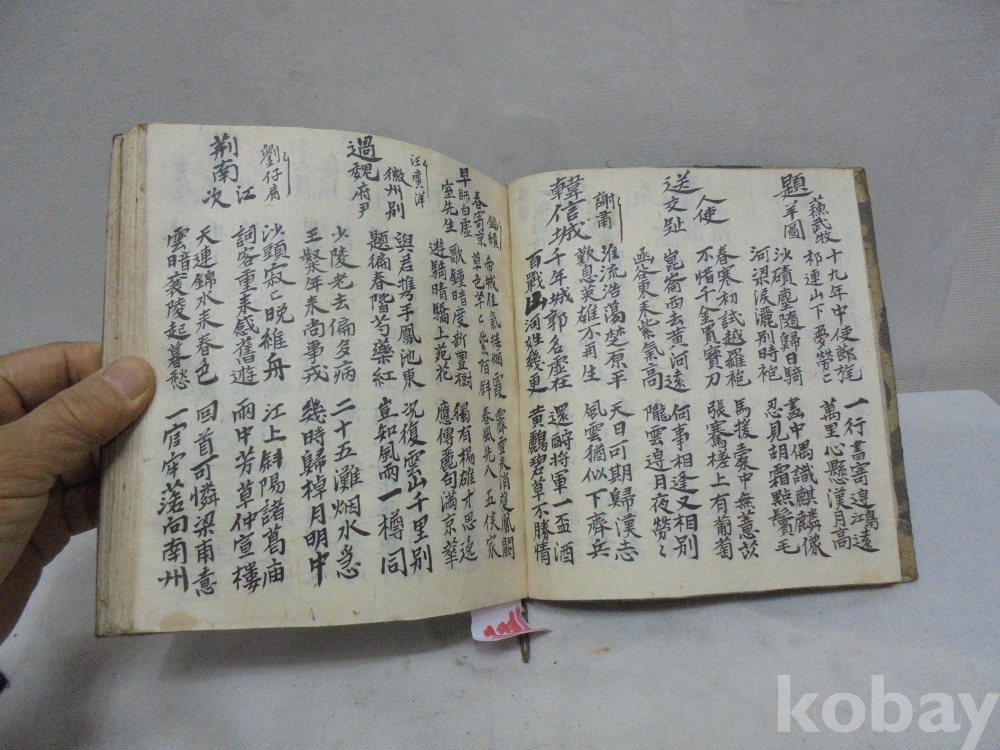 題蘇武牧
羊圖
十九年中使節旄 一行書寄邊鴻遠
祁連山下夢勞々 萬里心懸漢月高
沙磧塵隨歸日騎 畵中偶識麒麟像
河梁淚灑別時袍 忍見胡霜點鬢毛
送人使
交趾
春寒初試越羅袍 馬援橐中無薏苡
不惜千金買寶刀 張騫槎上有葡萄
崑崙西去黃河遠 何事相逢又相別
函谷東來紫氣高 隴雲邊日夜勞々
謝肅
韓信城
淮流浩蕩楚原平 天日可期歸漢志
歎息英雄不再生 風雲猶似下齊兵
千年城郭名虛在 還酹將軍一盃酒
百戰山河姓幾更 黃鸝碧草不勝情
早春寄京
師白虛
室先生
帝城佳氣接烟霞 霽雪未消雙鳳闕
草色芊々紫陌斜 春風先入五侯家
歌鐘暗度新豐樹 獨有楊雄才思逸
遊騎晴驕上苑花 應傳麗句滿京華
汪廣洋
過徽州別
魏府尹
與君携手鳳池東 況復雲山千里別
題徧春階芍藥紅 豈知風雨一樽同
少陵老去偏多病 二十五灘烟水急
王粲年來尚事戎 幾時歸棹月明中
劉仔肩
荊南江次
沙頭寂々晚維舟 江上斜陽諸葛庙
詞客重來感舊遊 雨中芳草仲宣樓
天連錦水來春色 回首可憐梁甫意
雲暗襄陵起暮愁 一官牢落向南州
kobay